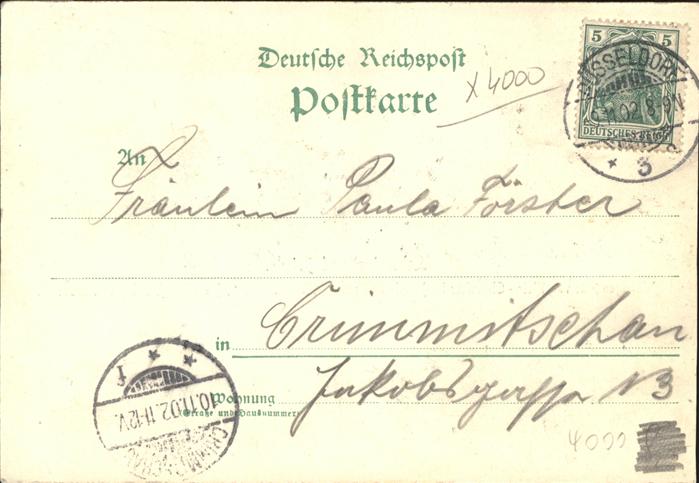 Deutsche Reichspost
Postkarte
X 4000
5 5
DÜSSELDORF
11.02.8-9N
DEUTSCHES REICH
* 3
An
Fräulein Paula Förster
in Crimmitschau
Wohnung
(Straße und Hausnummer)
Jakobsgasse
10.11.02.11-12V.
f
4000